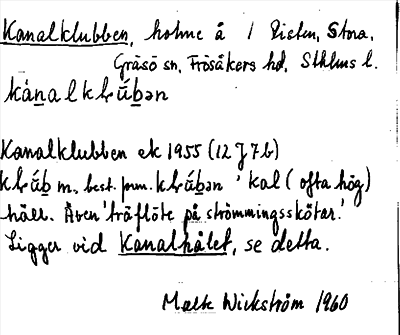 Kanalklubben, holme å / Risten, Stora,
Gräsö sn, Frösåkers hd, Sthlms l.
kánalklúbən
Kanalklubben ek 1955 (12 J 7 b)
klúb m., best. form. klúbən 'kal (ofta hög)
häll. Även 'träflöte på strömmingsskötar.'
Ligger vid Kanalhålet, se detta.
Mats Wickström 1960